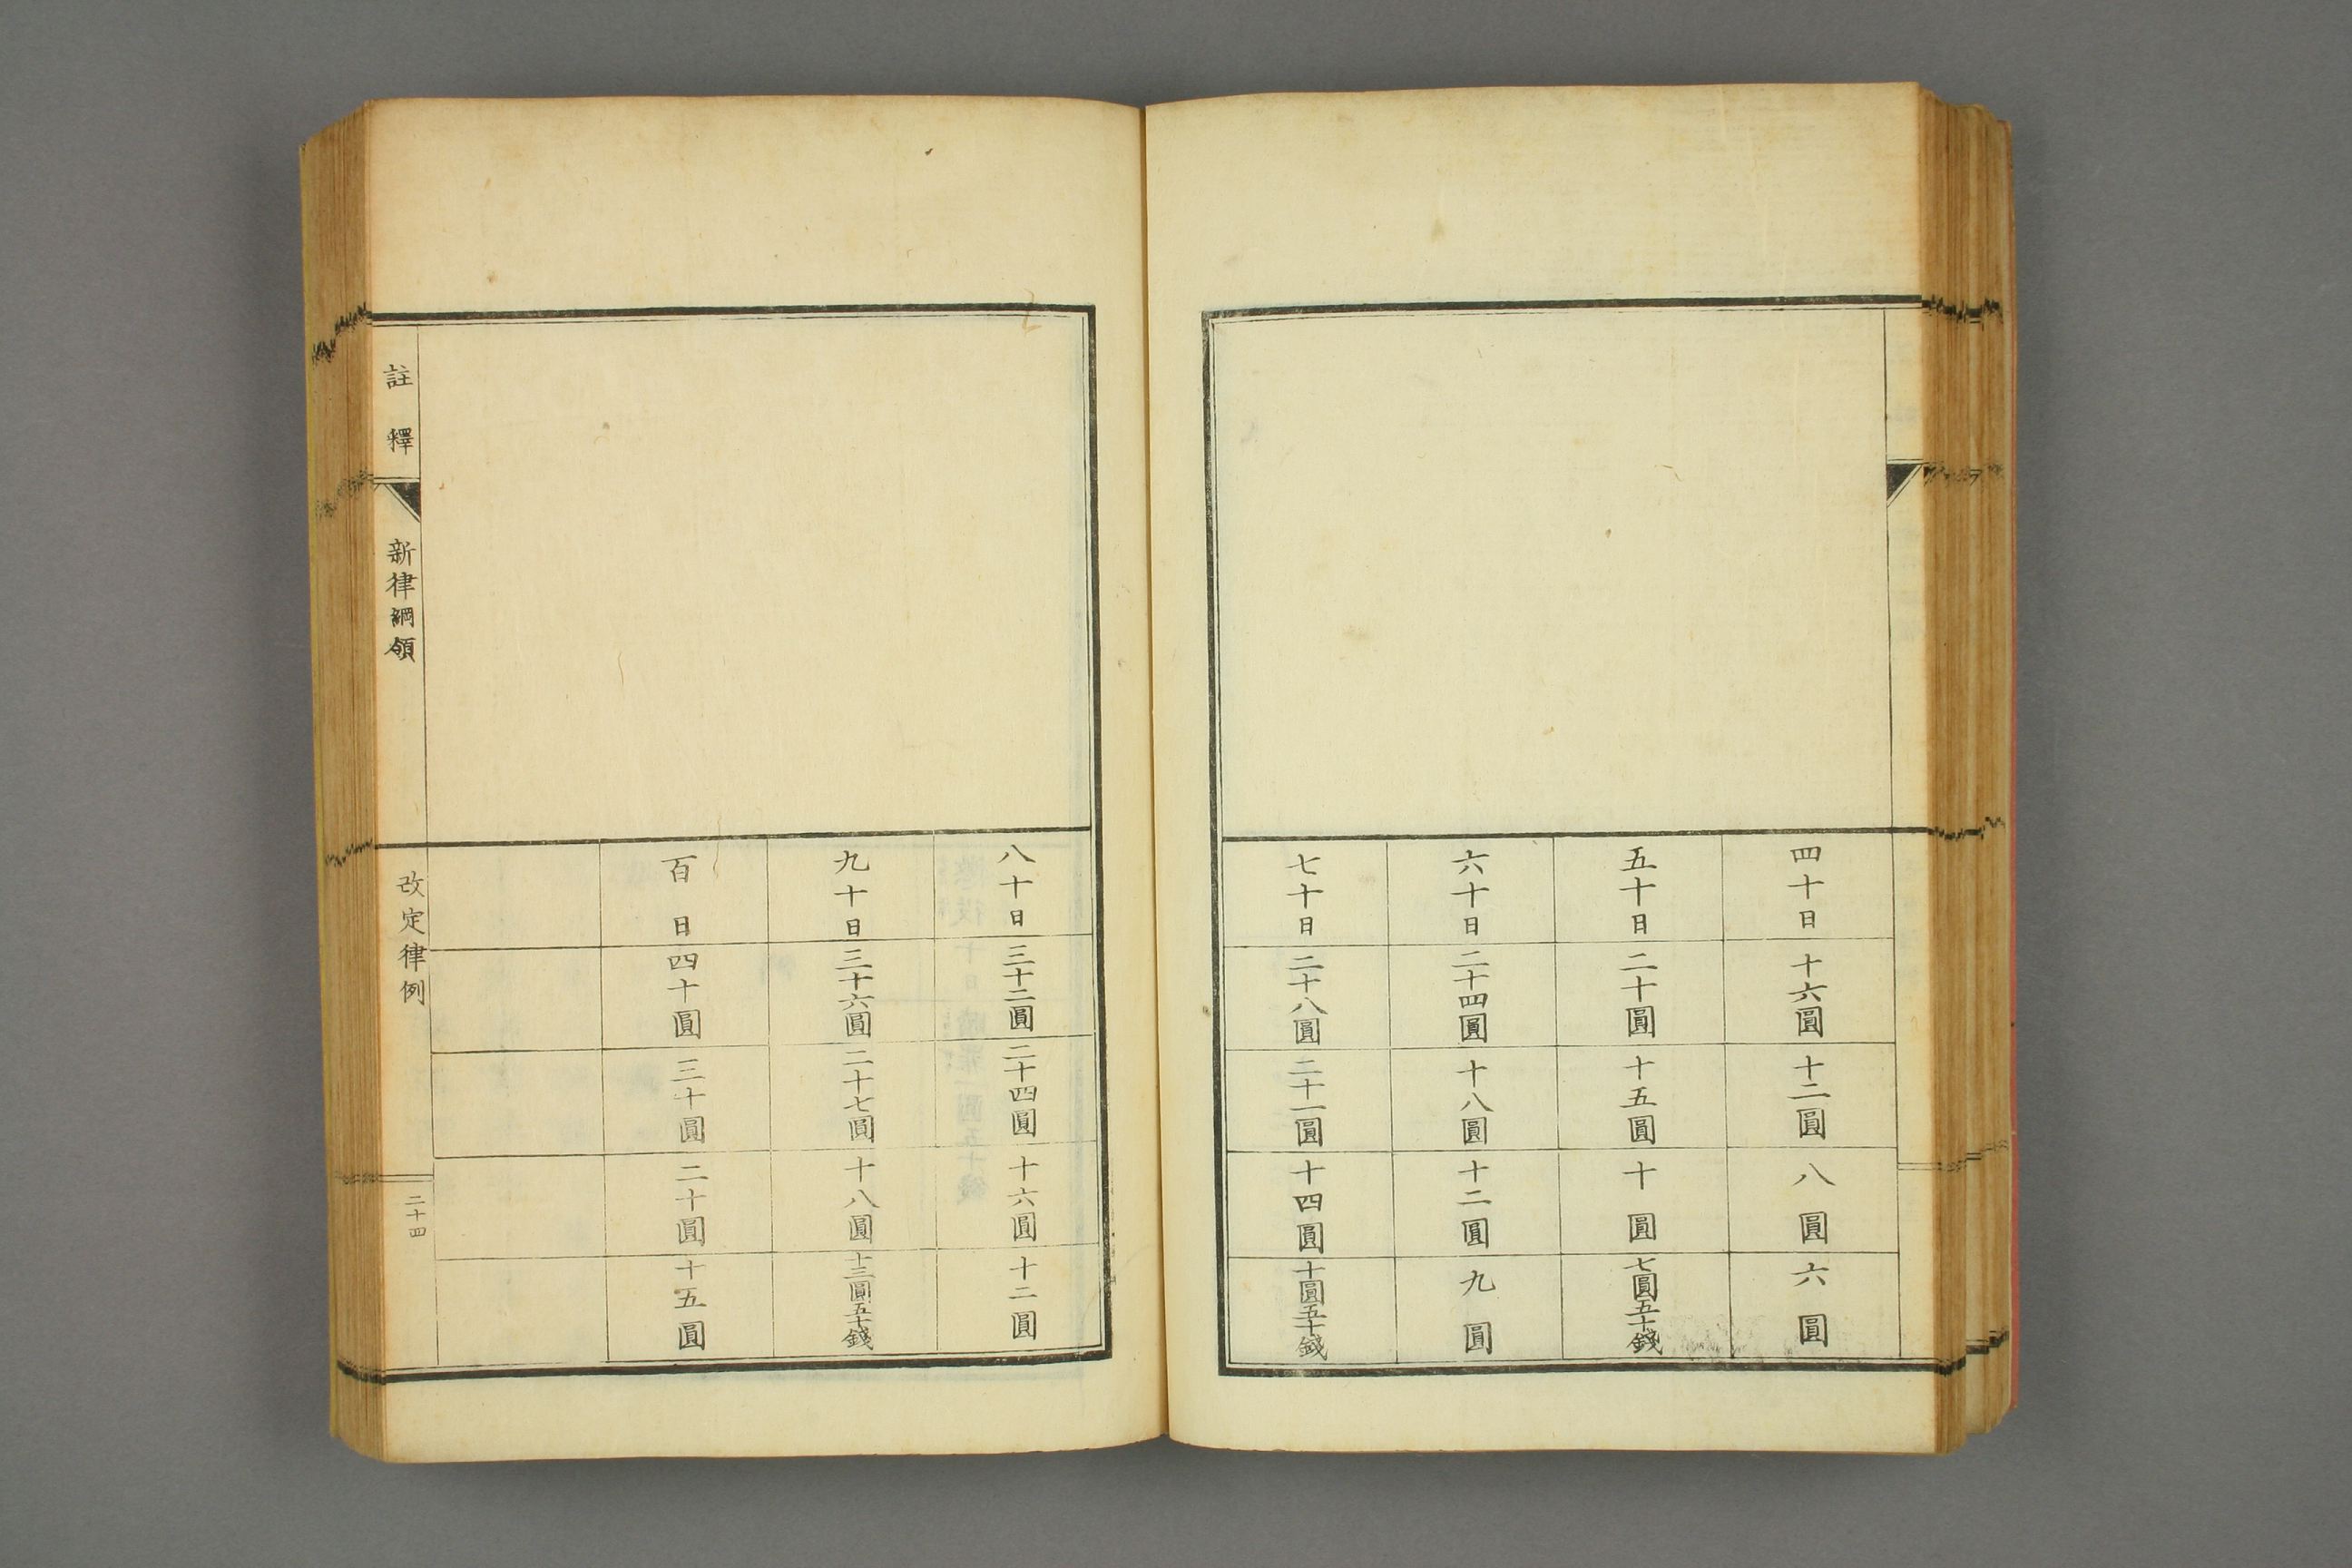 四十日 十六圓 十二圓 八圓 六圓
五十日 二十圓 十五圓 十圓 七圓五十錢
六十日 二十四圓 十八圓 十二圓 九圓
七十日 二十八圓 二十一圓 十四圓 十圓五十錢
八十日 三十二圓 二十四圓 十六圓 十二圓
九十日 三十六圓 二十七圓 十八圓 十三圓五十錢
百日 四十圓 三十圓 二十圓 十五圓
註釋 新律綱領 改定律例 二十四